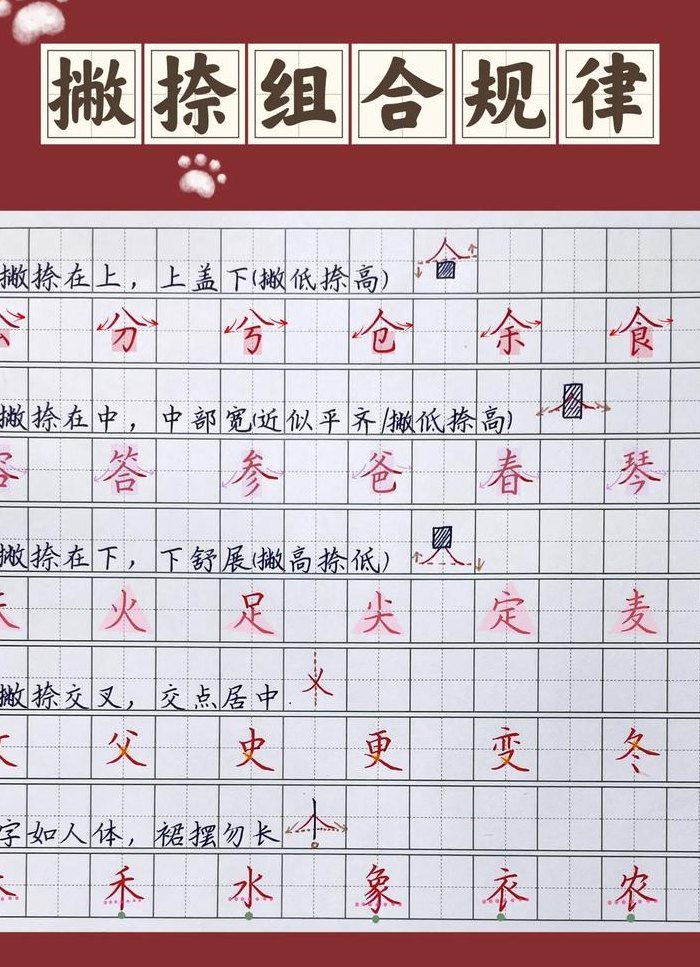 撇捺组合规律
撇捺在上，上盖下(撇低捺高)
分 兮 仓 余 食
撇捺在中，中部宽(近似平齐/撇低捺高)
容 答 参 爸 春 琴
撇捺在下，下舒展(撇高捺低)
火 足 尖 定 麦
撇捺交叉，交点居中
父 史 更 变 冬
字如人体，裙摆勿长
禾 水 象 衣 农